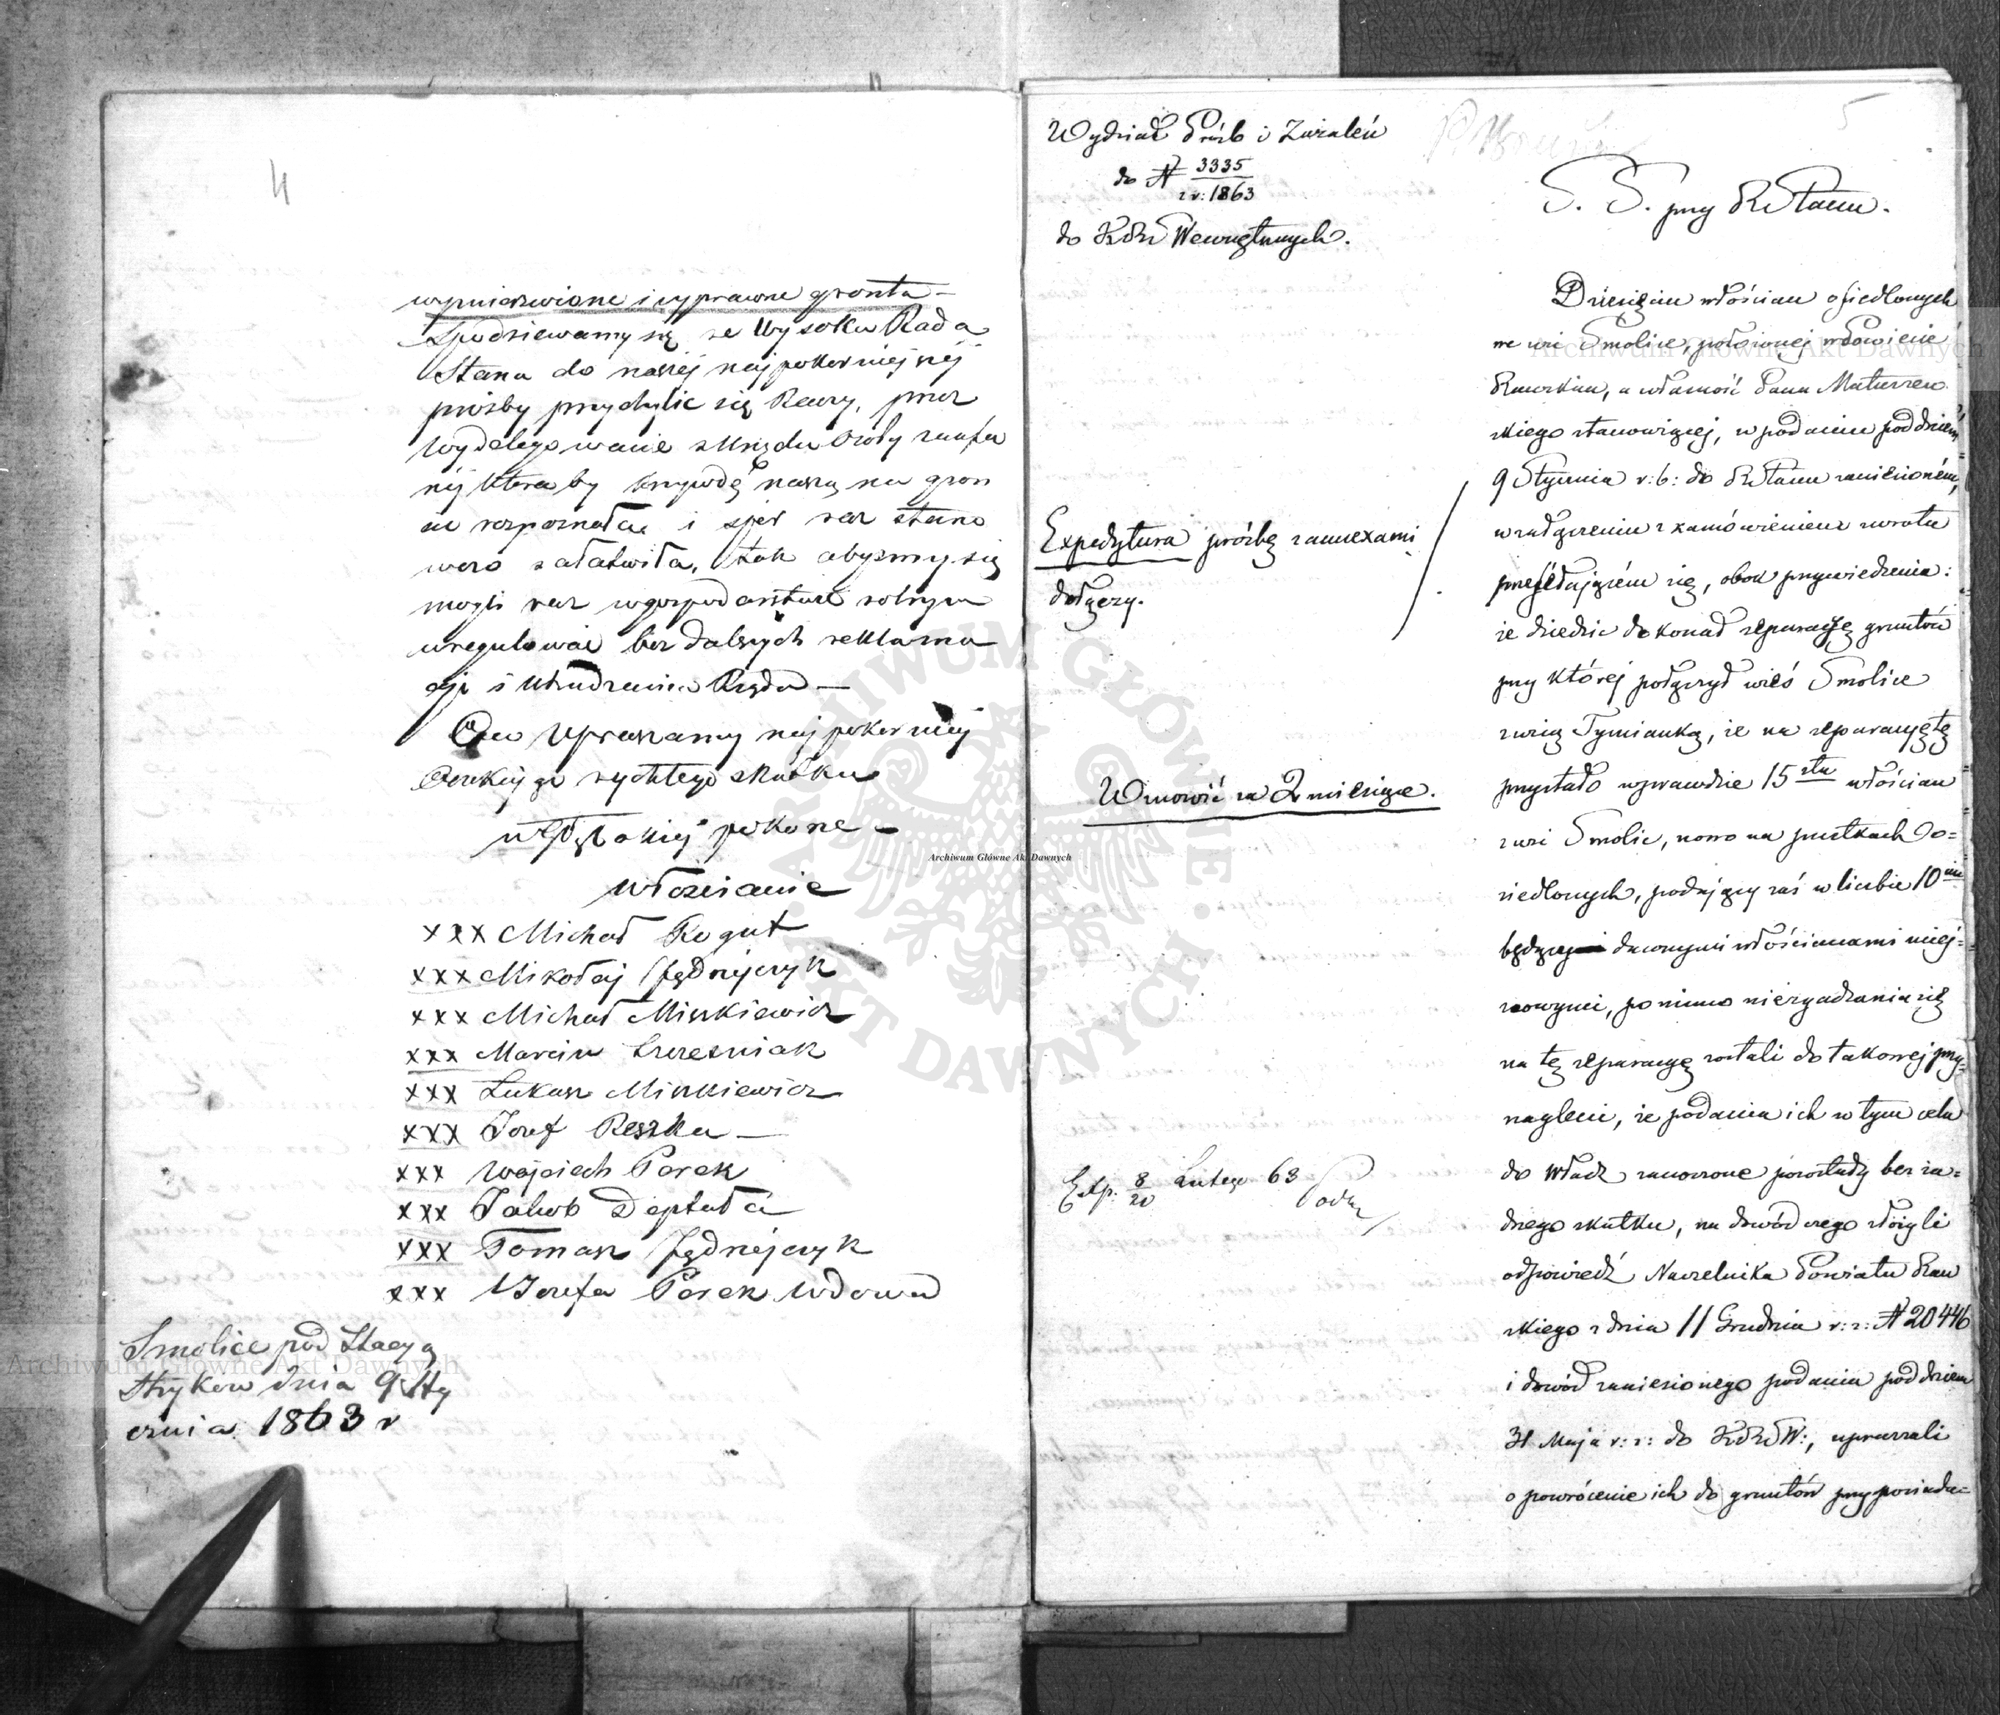 4
wymierzwione i uprawne gronta —
Spodziewamy się ze Wysoka Rada
Stanu do naszéj najpokorniejszéj
prośby przychylic się Raczy, przez
Wydelegowanie z Urzędu Osoby zaufa
néj któraby krzywdę naszą na gron
cie rozpoznała i spór raz stano
wczo załatwiła, tak abyśmy się
mogli raz w gospodarstwie rolnym
uregulować bez dalszych reklama
cji i utrudzenia Rządu —
O co Upraszamy najpokorniej
Oczekując rychłego skutku
włościanie
xxx Michał Kogut
xxx Mikołaj Jędrzejczyk
xxx Michał Miszkiewicz
xxx Marcin Szcześniak
xxx Łukasz Miszkiewicz
xxx Józef Reszka —
xxx Wojciech Perek
xxx Jakób Deptuła
xxx Tomasz Jędrzejczyk
xxx Józefa Perek Wdowa
Smolice pod Stacyą
Stryków dnia 9 Sty
cznia 1863 r
5
Wydział Próśb i Zażaleń
do N 3335
z r: 1863
do KRz Wewnętrznych.
S. S. przy RStanu.
Expedytura prośbę z annexami
dołączy.
Wznowić za 2 miesiące.
Exp. 8/20 Lutego 63
Dziesięciu włościan osiedlonych
we wsi Smolice, położonej w Powiecie
Rawskim, a własność Pana Matuszew
skiego stanowiącej, w podaniu pod dniem
9 Stycznia r: b: do RStanu zaniesioném,
w załączeniu z zamówieniem zwrotu
przesyłającém się, obok przywiedzenia:
że dziedzic dokonał separacyę gruntów
przy której połączył wieś Smolice
z wsią Tymianką, że na separacyę tę
przystało wprawdzie 15stu włościan
z wsi Smolic, nowo na pustkach o=
siedlonych, podający zaś w liczbie 10ciu
będący dawnymi włościanami miej=
scowymi, pomimo niezgadzania się
na tę separacyę zostali do takowej przy=
nagleni, że podania ich w tym celu
do Władz zanoszone pozostały bez ża=
dnego skutku, na dowód czego złożyli
odpowiedź Naczelnika Powiatu Raw
skiego z dnia 11 Grudnia r: z: N 20446
i dowód zaniesionego podania pod dniem
31 Maja r: z: do KRzSW:, upraszali
o powrócenie ich do gruntów przy posiada=
Archiwum Główne Akt Dawnych
Archiwum Główne Akt Dawnych
Archiwum Główne Akt Dawnych
ARCHIWUM GŁÓWNE · AKT DAWNYCH ·